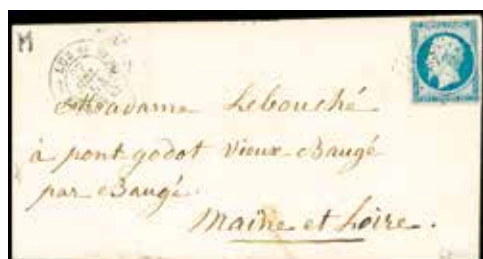 M
Madame Lebouché
à pont godot Vieux Baugé
par Baugé.
Maine et Loire.